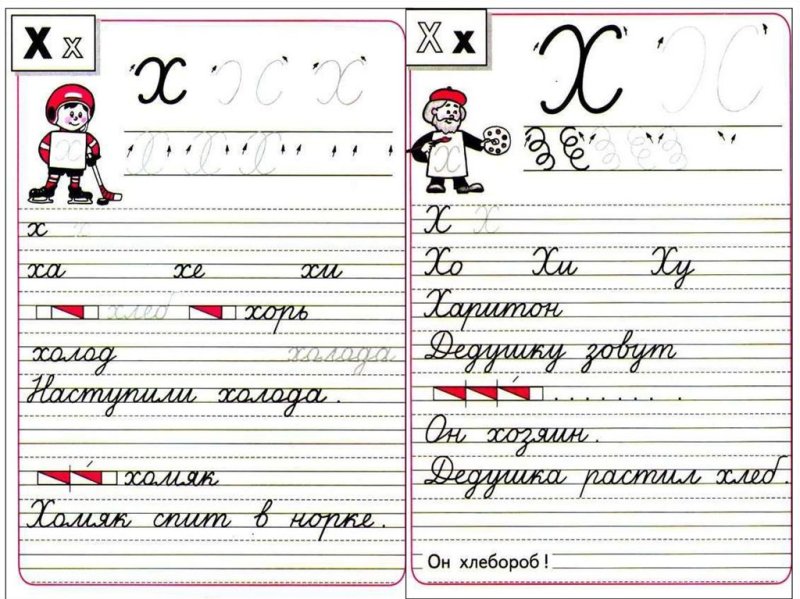 Х х
х х х
х х х
х х
ха хе хи
хлеб хорь
холод холода
Наступили холода.
хомяк
Хомяк спит в норке.
Х х
Х Х
Х Х
Хо Хи Ху
Харитон
Дедушку зовут
. . . . . . . .
Он хозяин.
Дедушка растил хлеб.
Он хлебороб!